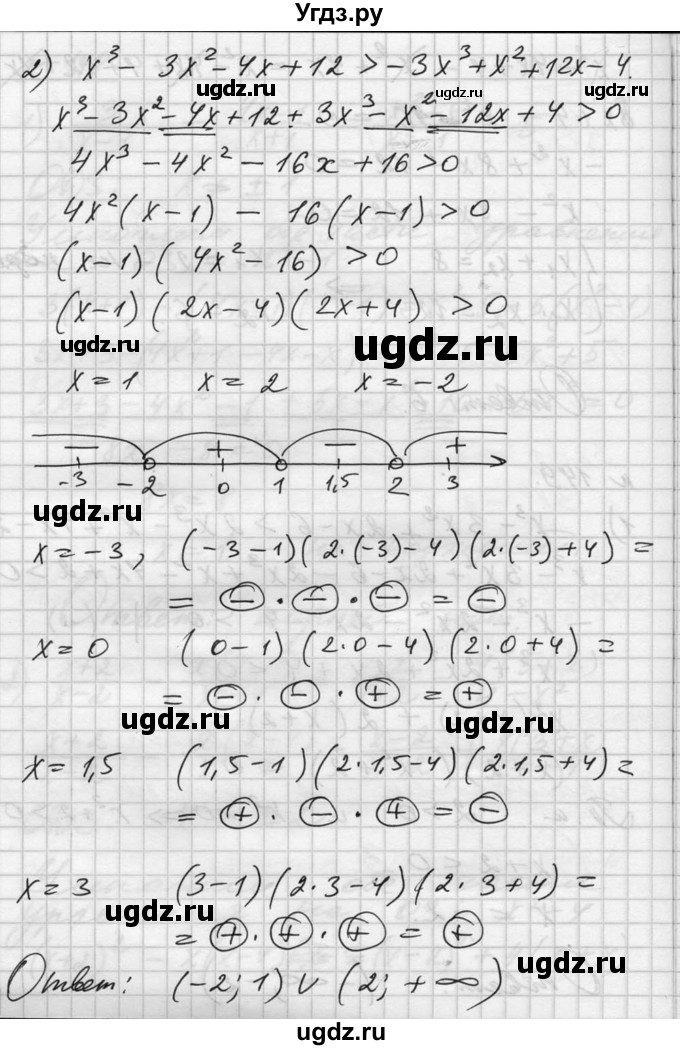 Угдз.ру
2) x³ - 3x² - 4x + 12 > -3x³ + x² + 12x - 4.
ugdz.ru ugdz.ru ugdz.ru
x³ - 3x² - 4x + 12 + 3x³ - x² - 12x + 4 > 0
4x³ - 4x² - 16x + 16 > 0
4x²(x - 1) - 16(x - 1) > 0
(x - 1)(4x² - 16) > 0
(x - 1)(2x - 4)(2x + 4) > 0
ugdz.ru ugdz.ru
x = 1 x = 2 x = -2
- + - +
-3 -2 0 1 1,5 2 3
ugdz.ru
x = -3, (-3 - 1)(2·(-3) - 4)(2·(-3) + 4) =
= ⊖ · ⊖ · ⊖ = ⊖
x = 0 (0 - 1)(2·0 - 4)(2·0 + 4) =
= ⊖ · ⊖ · ⊕ = ⊕
ugdz.ru ugdz.ru
x = 1,5 (1,5 - 1)(2·1,5 - 4)(2·1,5 + 4) =
= ⊕ · ⊖ · ⊕ = ⊖
x = 3 (3 - 1)(2·3 - 4)(2·3 + 4) =
ugdz.ru
= ⊕ · ⊕ · ⊕ = ⊕
ugdz.ru
Ответ: (-2; 1) ∪ (2; +∞)
ugdz.ru